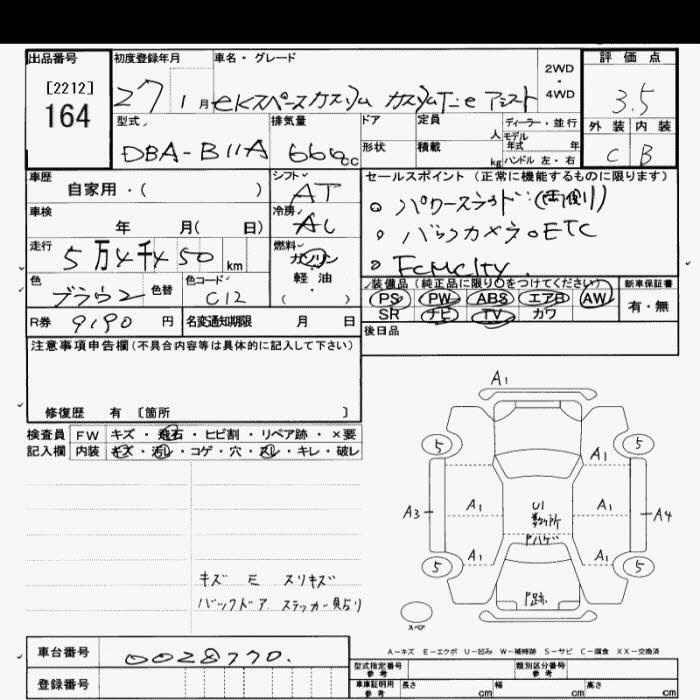 出品番号 初度登録年月 車名・グレード 2WD・4WD 評価点
[2212]
164
27 1月 eKスペースカスタム カスタムT:e アシスト 3.5
型式 排気量 ドア 定員 人 ディーラー・並行 外装 内装
モデル年式 年
DBA-B11A 660cc 形状 積載 kg ハンドル 左・右 C B
車歴 自家用・( ) シフト AT セールスポイント (正常に機能するものに限ります)
車検 年 月( 日) 冷房 AC
パワースライド(両側)
バックカメラ ETC
走行 5万4千450km 燃料 ガソリン・軽油・( )
色 ブラウン 色替 色コード C12
装備品 (純正品に限り○をつけてください) 新車保証書
PS PW ABS エアB AW 有・無
SR ナビ TV カワ
R券 9190円 名変通知期限 月 日 後日品
注意事項申告欄(不具合内容等は具体的に記入して下さい)
修復歴 有 〔箇所 〕
検査員記入欄 FW キズ・飛石・ヒビ割・リペア跡・×要
内装 キズ・汚レ・コゲ・穴・スレ・キレ・破レ
A1
5 5
A1 A1
A3 U1 A4
数ヶ所
Pハゲ
A1 A1
5 5
P跡
キズ E スリキズ
バックドア ステッカー貼り
スペア
A-キズ E-エクボ U-凹み W-補修跡 S-サビ C-腐食 XX-交換済
車台番号 0028770.
登録番号
型式指定番号 参考 類別区分番号 参考
車庫証明用 参考 長さ cm 幅 cm 高さ cm